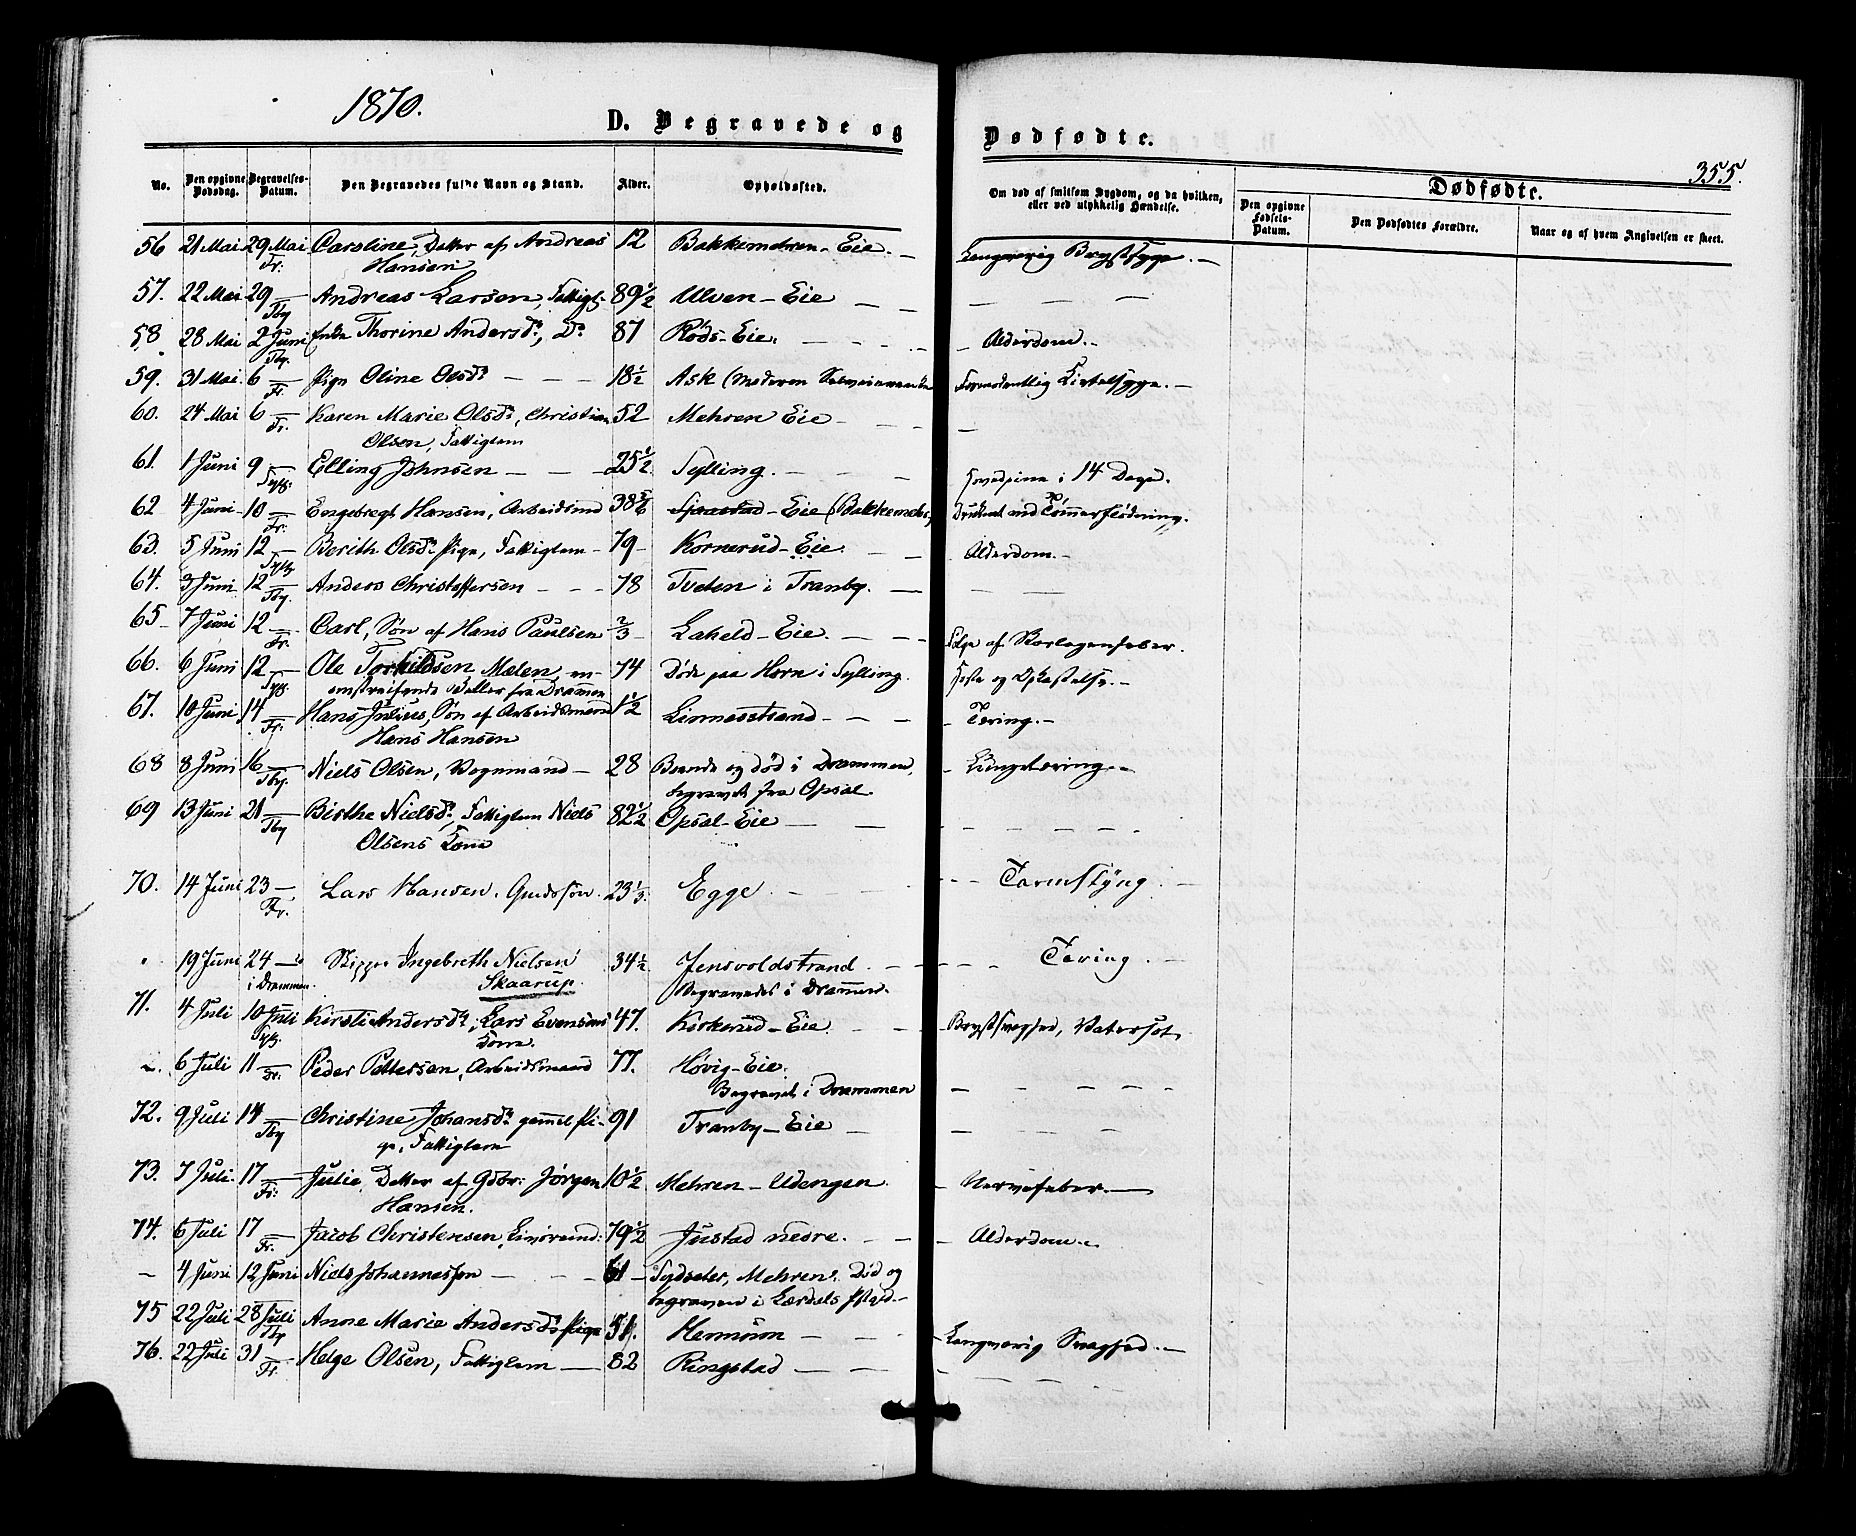 1870.
D. Begravede og
Dødfødte.
355.
No.
Den opgivne Dødsdag.
Begravelses-Datum.
Den Begravedes fulde Navn og Stand.
Alder.
Opholdssted.
Om død af smitsom Sygdom, og da hvilken, eller ved ulykkelig Hændelse.
Dødfødte.
Den opgivne Fødsels-Datum.
Den Dødfødtes Forældre.
Naar og af hvem Angivelsen er skeet.
56 21 Mai 29 Mai Caroline, Datter af Andreas 12 Bakkemehren-Eie. Langvarig Brystsyge.
Fr. Hansen
57. 22 Mai 29 Andreas Larsen, Fattigl. 89 1/2 Ulven-Eie
Tby
58 28 Mai 2 Juni Enke Thorine Andersd., Do 87 Røds-Eie. Alderdom.
Tby.
59. 31 Mai 6 Pige Oline Olsd. 18 1/2 Ask (Moderen Kirtelsyge.
Fr.
60. 24 Mai 6 Karen Marie Olsd., Christian 52 Mehren Eie
Fr. Olsen, Fattiglem
61. 1 Juni 9 Elling Johnsen 25 1/2 Sylling. i 14 Dage.
Syll.
62 4 Juni 10 Engebregt Hansen, Arbeidsmd 38 Sjaastad-Eie (Bakkemehr.) Druknet ved Tømmerflødning.
Fr.
63. 5 Juni 12 Berith Olsd. Pige, Fattiglem 79 Kornerud-Eie. Alderdom.
Sylg
64. 3 Juni 12 Anders Christoffersen 78 Tveten i Tranby.
Tby.
65 7 Juni 12 Carl, Søn af Hans Paulsen 2/3 Laheld-Eie. Følge af Skarlagensfeber.
Fr.
66. 6 Juni 12 Ole Torkildsen Mælen, en 74 Døde paa Horn i Sylling. Hoste og Opkastelse.
Syll. omstreifende Betler fra Drammen
67. 10 Juni 14 Hans Julius, Søn af Arbeidsmand 1 1/2 Linnesstrand Tæring.
Fr. Hans Hansen
68 8 Juni 16 Niels Olsen, Vognmand 28 Boende og død i Drammen, Lungetæring.
Tby. begravet fra Opsal.
69 13 Juni 21 Birthe Nielsd., Fattiglem Niels 82 1/2 Opsal-Eie
Tby Olsens Kone
70. 14 Juni 23 Lars Hansen. Gaardssøn. 23 1/3 Egge Tarmslyng.
Fr.
19 Juni 24 Skipper Ingebreth Nielsen 34 1/2 Jensvoldstrand Tæring.
i Drammen. Skaarup. Begravedes i Drammen.
71. 4 Juli 10 Juli Kirsti Andersd., Lars Evensens 47. Kirkerud-Eie. Brystsvaghed, Vatersot
Sylg. Kone.
6 Juli 11 Peder Pettersen, Arbeidsmand 77. Høvig-Eie.
Dr. Begravet i Drammen
72. 9 Juli 14 Christine Johansd. gammel Pi- 91 Tranby-Eie
Tby ge, Fattiglem
73. 7 Juli 17 Julie, Datter af Gdbr: Jørgen 10 1/2 Mehren-Udengen. Nervefeber.
Fr: Hansen.
74. 6 Juli 17 Jacob Christensen, 79 1/2 Justad nedre. Alderdom.
Fr.
4 Juni 12 Juni Niels Johannessen 61 Sydseter, Mehren. Død og
begraven i Lærdals Pstgd.
75 22 Juli 28 Juli Anne Marie Andersd. Pige 51. Hennum Langvarig Svaghed.
Tby
76. 22 Juli 31 Helge Olsen, Fattiglem 82 Ringstad
Fr.